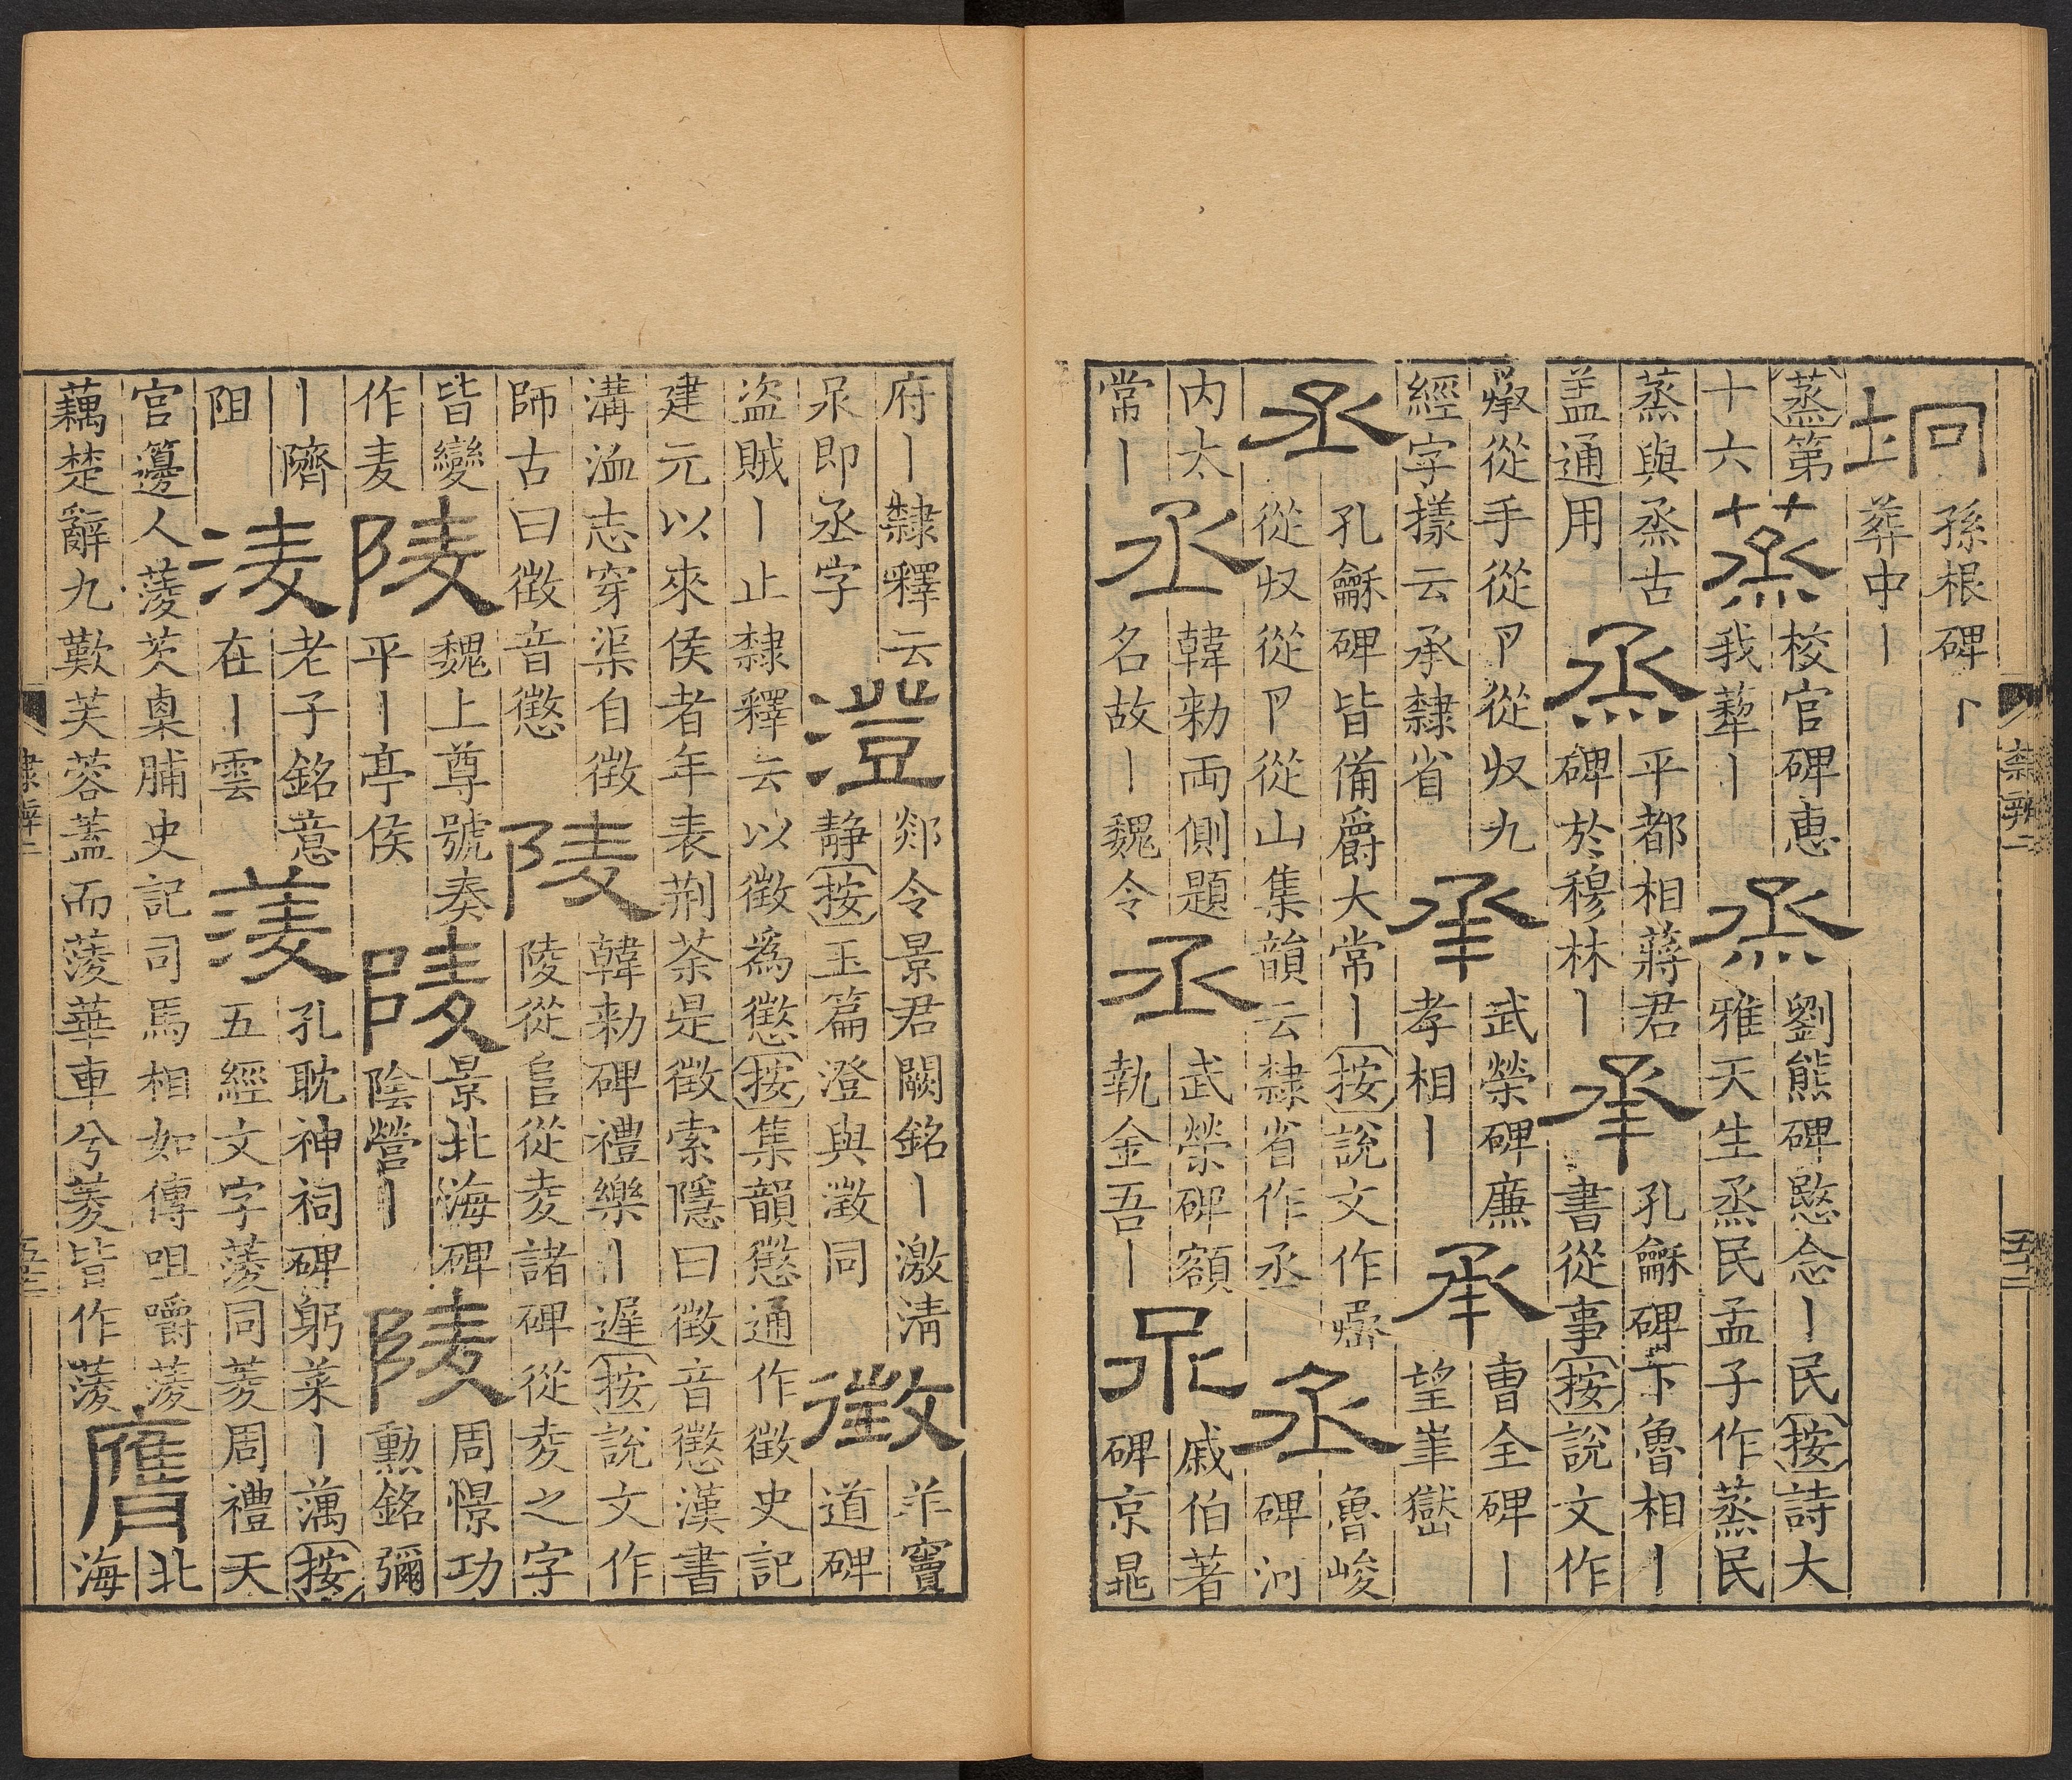 坰 孫根碑丨葬中丨
蒸第十六 蒸 校官碑惠我蔾丨 烝 劉熊碑愍念丨民按詩大雅天生烝民孟子作蒸民
蒸與烝古盖通用 烝 平都相蔣君碑於穆林丨 承 孔龢碑下魯相丨書從事按說文作
從手從卪從収九經字㨾云承隸省 承 武榮碑廉孝相丨 承 曹全碑丨望崋嶽
丞 孔龢碑皆備爵大常丨按說文作從収從卪從山集韻云隸省作丞 丞 魯峻碑河
内太常丨 丞 韓勑兩側題名故丨魏令 丞 武榮碑額執金吾丨 𣴎 戚伯著碑京晁
府丨隸釋云𣴎即丞字 澄 郯令景君闕銘丨激清靜按玉篇澄與澂同 徵 羊竇道碑
盜賊丨止隸釋云以徵爲懲按集韻懲通作徵史記建元以來侯者年表荆荼是徵索隱曰徵音懲漢書
溝洫志穿渠自徵師古曰徵音懲 陵 韓勑碑禮樂丨遅按說文作陵從𨸏從夌諸碑從夌之字
皆變作麦 陵 魏上尊號奏平丨亭侯 陵 景北海碑陰營丨 陵 周憬功勳銘彌
丨隮阻 淩 老子銘意在丨雲 蔆 孔耽神祠碑躬菜丨藕按五經文字蔆同菱周禮天
官籩人蔆芡㮚脯史記司馬相如傳咀嚼蔆藕楚辭九歎芙蓉蓋而蔆華車兮菱皆作蔆 膺 北海